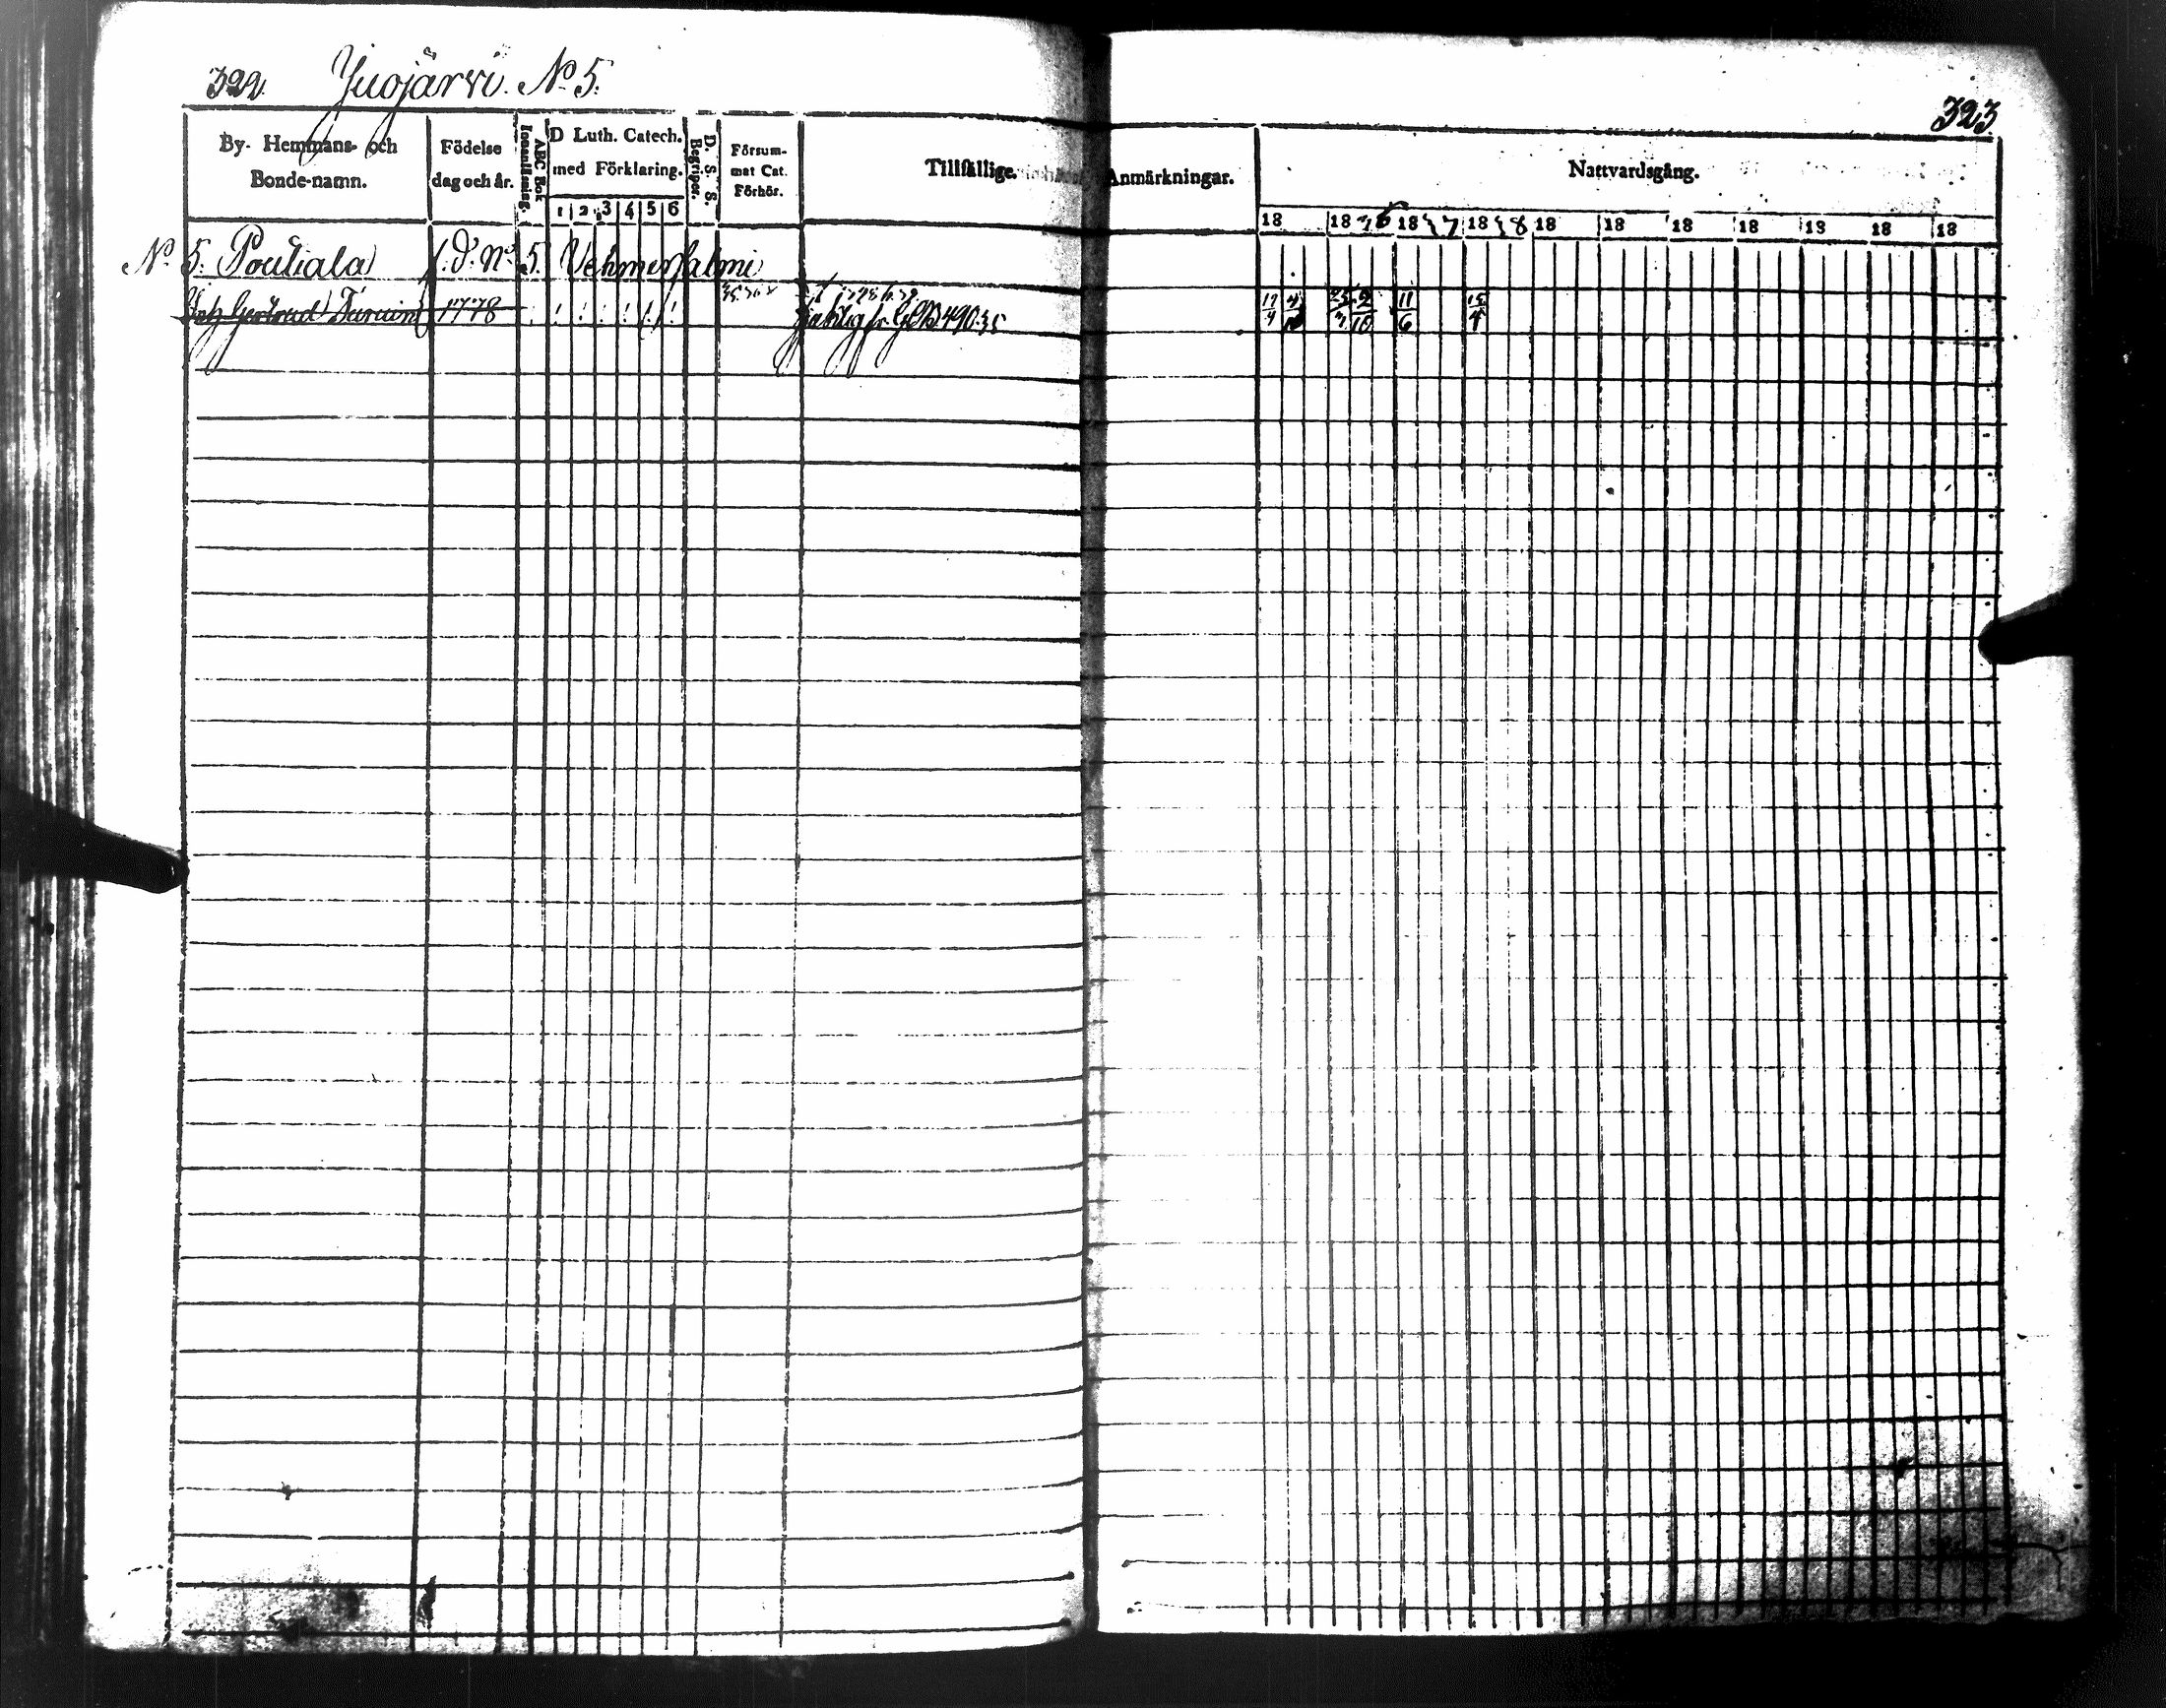 322. Juojärvi. No 5.
323
By- Hemmans- och Bonde-namn.
Födelse dag och år.
Innanläsning.
ABC Bok
D Luth. Catech. med Förklaring.
1 2 3 4 5 6
D. S. S. Begriper.
Försum- mat Cat. Förhör.
Tillfällige Anmärkningar.
Nattvardsgång.
18 18 36 18 37 18 38 18 18 18 18 18 18 18
No 5. Pouliala 1. d. No 5. Vehmersalmi
Gertrud 1778 490.35
17/4 2/10 11/6 15/4